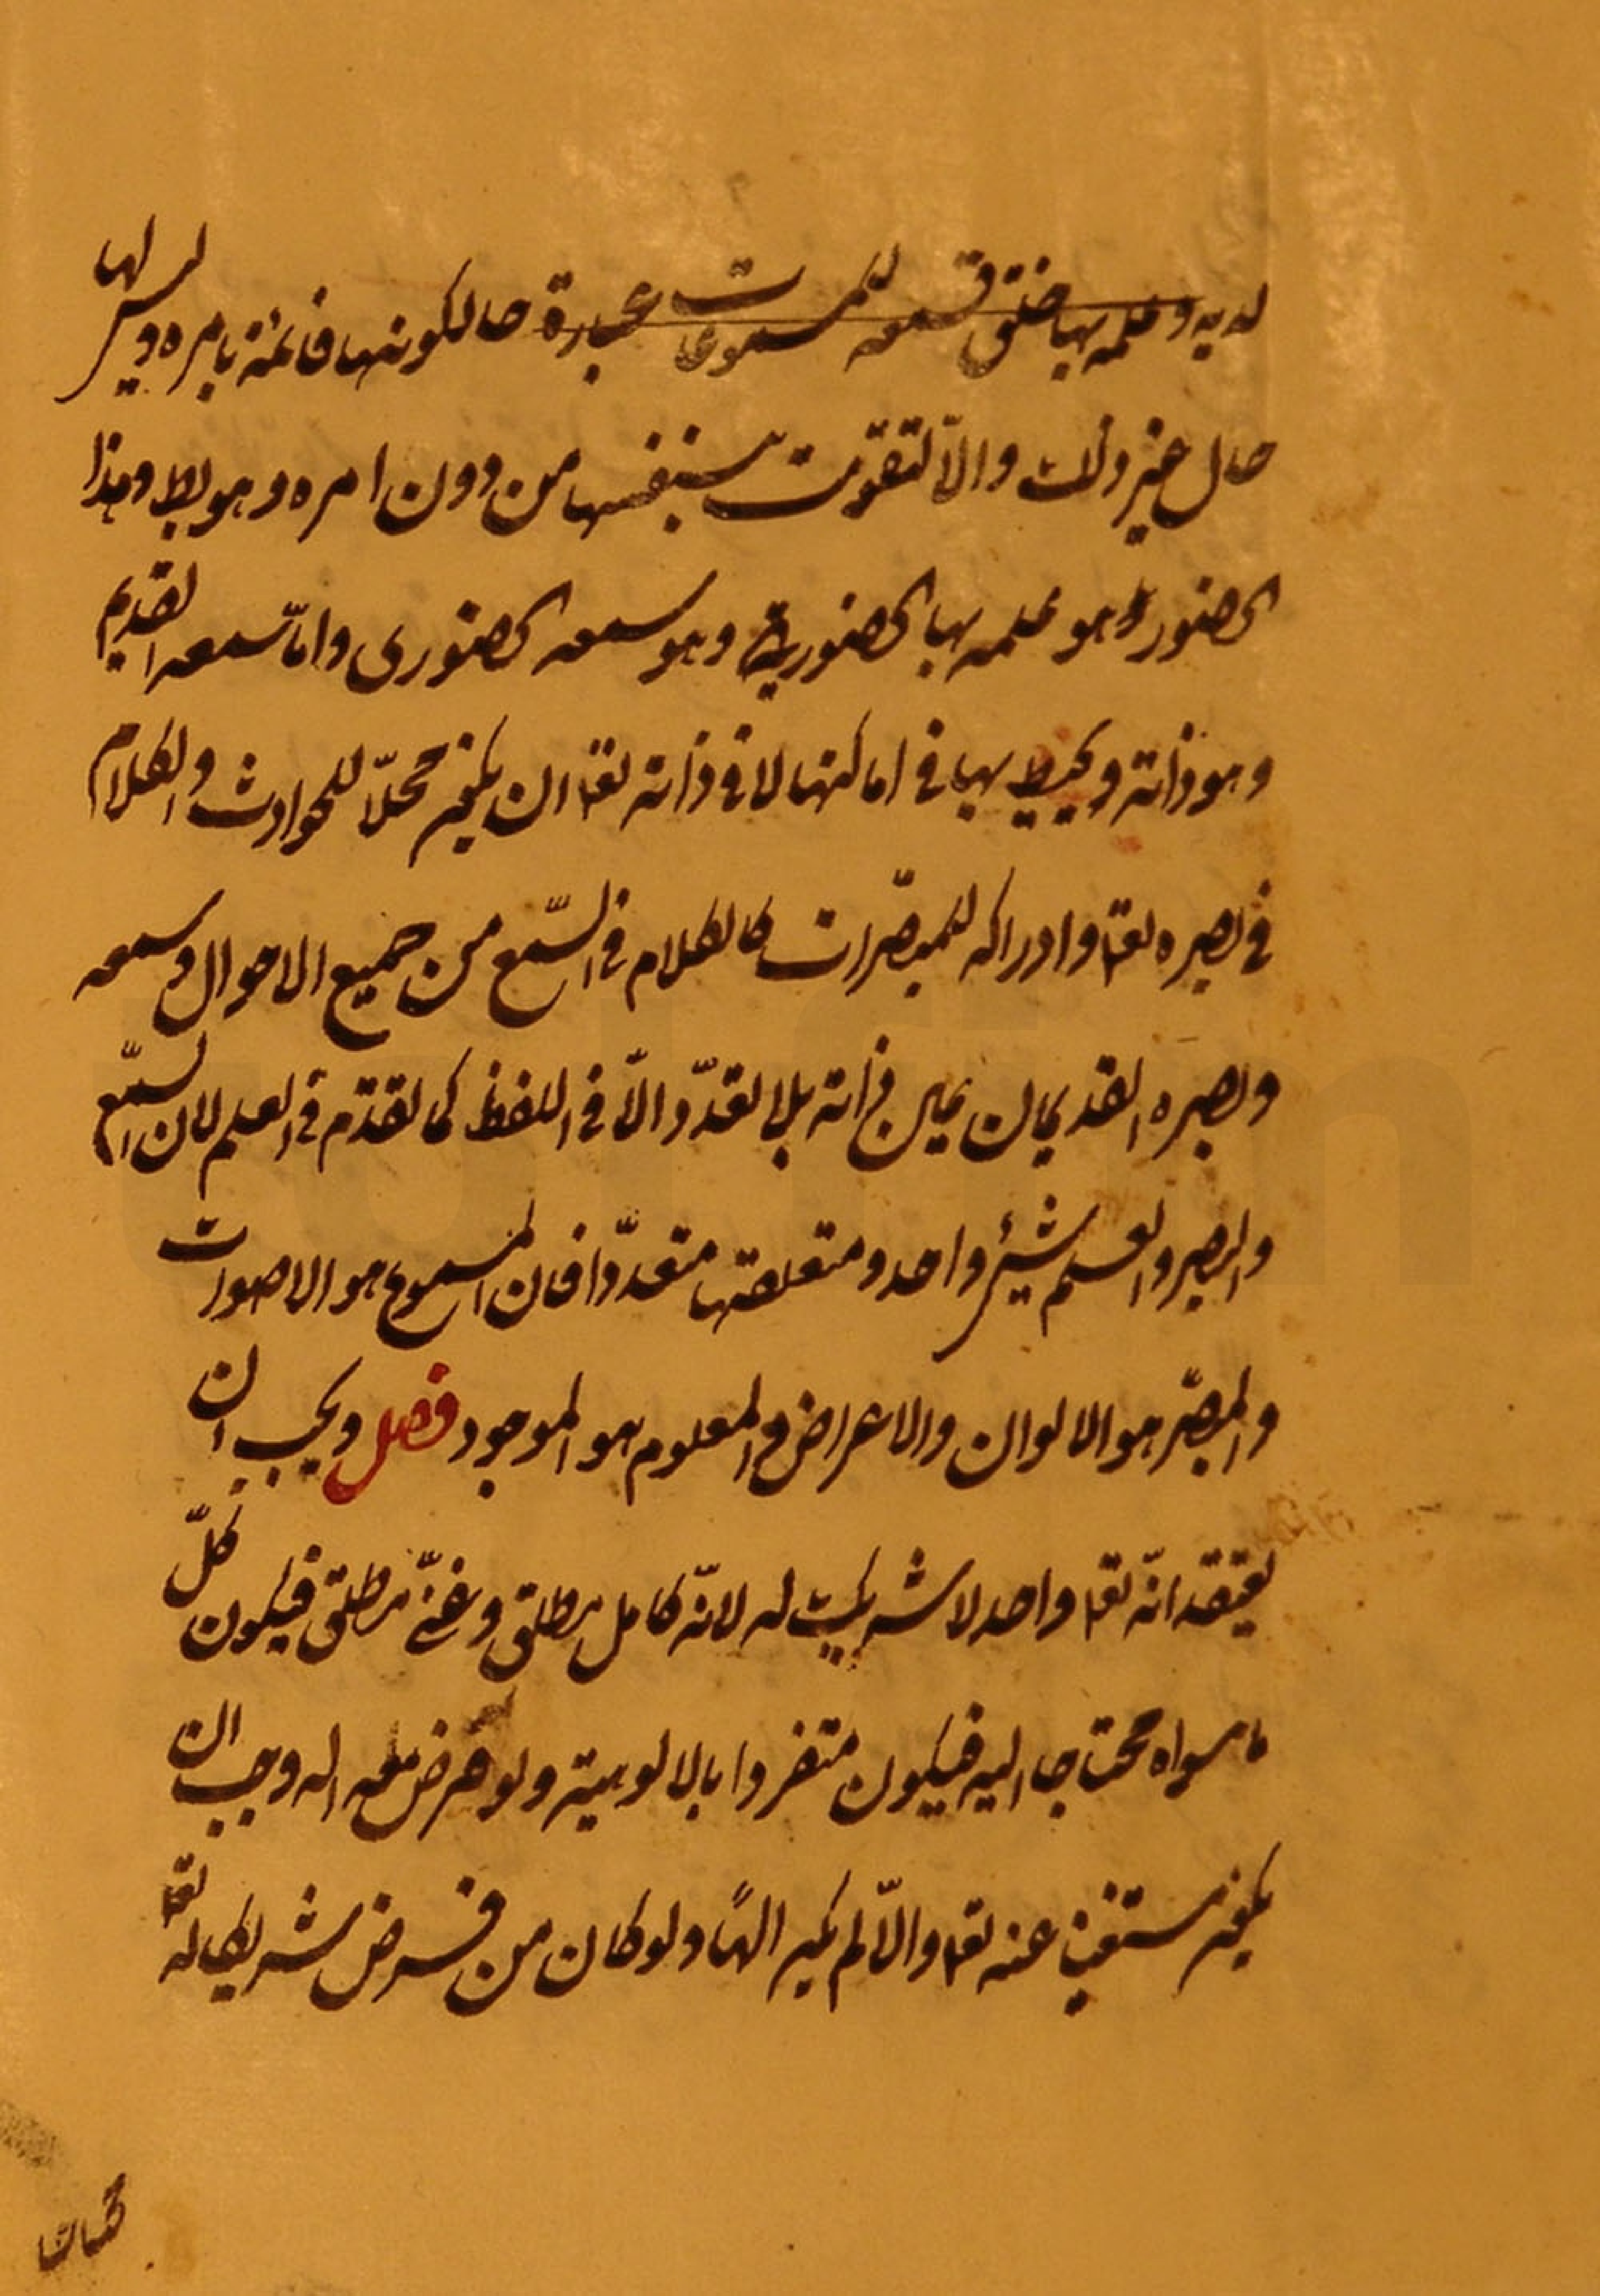 لديه وعلمه بها خلق فسمعه للمسموعات عبارة حالكونها قائمة بامره وليس لها
حال غير ذلك والّا لتقومت بنفسها من دون امره وهو بط وهذا
الحضور وهو علمه بها الحضورية وهو سمعه الحضورى وامّا سمعه القديم
وهو ذاته ويحيط بها فى اماكنها لا فى ذاته تعا ان يكون محلّا للحوادث والكلام
فى بصره تعا وادراكه للمبصّرات كالكلام فى السّمع من جميع الاحوال وسمعه
وبصره القديمان عين ذاته بلا تعدّد الّا فى اللفظ كما تقدّم فى العلم لان السّمع
والبصر والعلم شيئ واحد ومتعلقتها متعدّدا فان المسموع هو الاصوات
والمبصّر هو الالوان والاعراض والمعلوم هو الموجود فصل ويجب ان
يعتقد انّه تعا واحد لا شريك له لانّه كامل مطلق وغنىّ مطلق فيكون كلّ
ما سواه محتاجا اليه فيكون متفردا بالالوهية ولو فرض معه اله وجب ان
يكون مستغنيا عنه تعا والّا لم يكن الهًا ولو كان من فرض شريكا له تعا